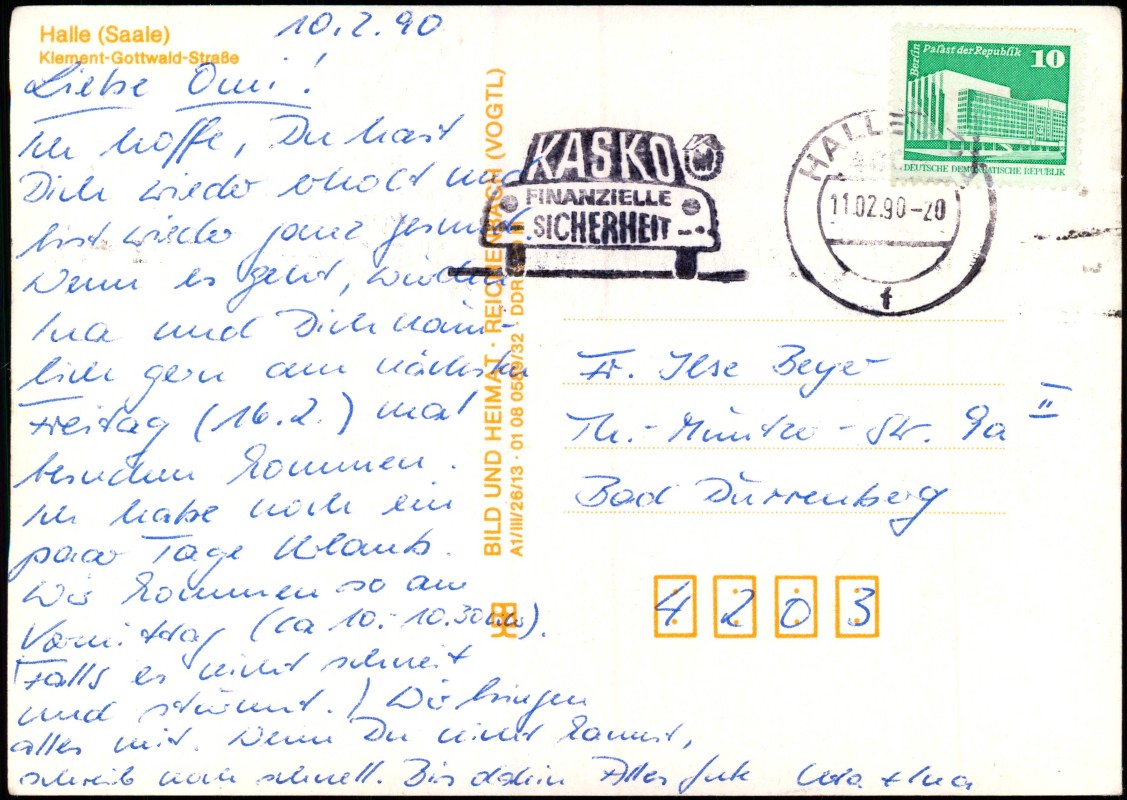 Halle (Saale)
Klement-Gottwald-Straße
10.2.90
Liebe Omi!
Ich hoffe, Du hast
Dich wieder erholt und
bist wieder ganz gesund.
Wenn es geht, würden
Ina und Dich näm-
lich gern am nächsten
Freitag (16.2.) mal
besuchen kommen.
Ich habe noch ein
paar Tage Urlaub.
Wir kommen so am
Vormittag (ca 10.-10.30 Uhr).
Falls es nicht schneit
und stürmt.) Wir bringen
alles mit. Wenn Du nicht kannst,
schreib noch schnell. Bis dahin Alles Gute + Ina
BILD UND HEIMAT · REICHENBACH (VOGTL)
A1/III/26/13 · 01 08 0589/32 · DDR
KASKO
FINANZIELLE
SICHERHEIT
Berlin
Palast der Republik
10
DEUTSCHE DEMOKRATISCHE REPUBLIK
HALLE
11.02.90-20
f
Fr. Ilse Beyer
Th.-Müntzer-Str. 9a
II
Bad Dürrenberg
4203